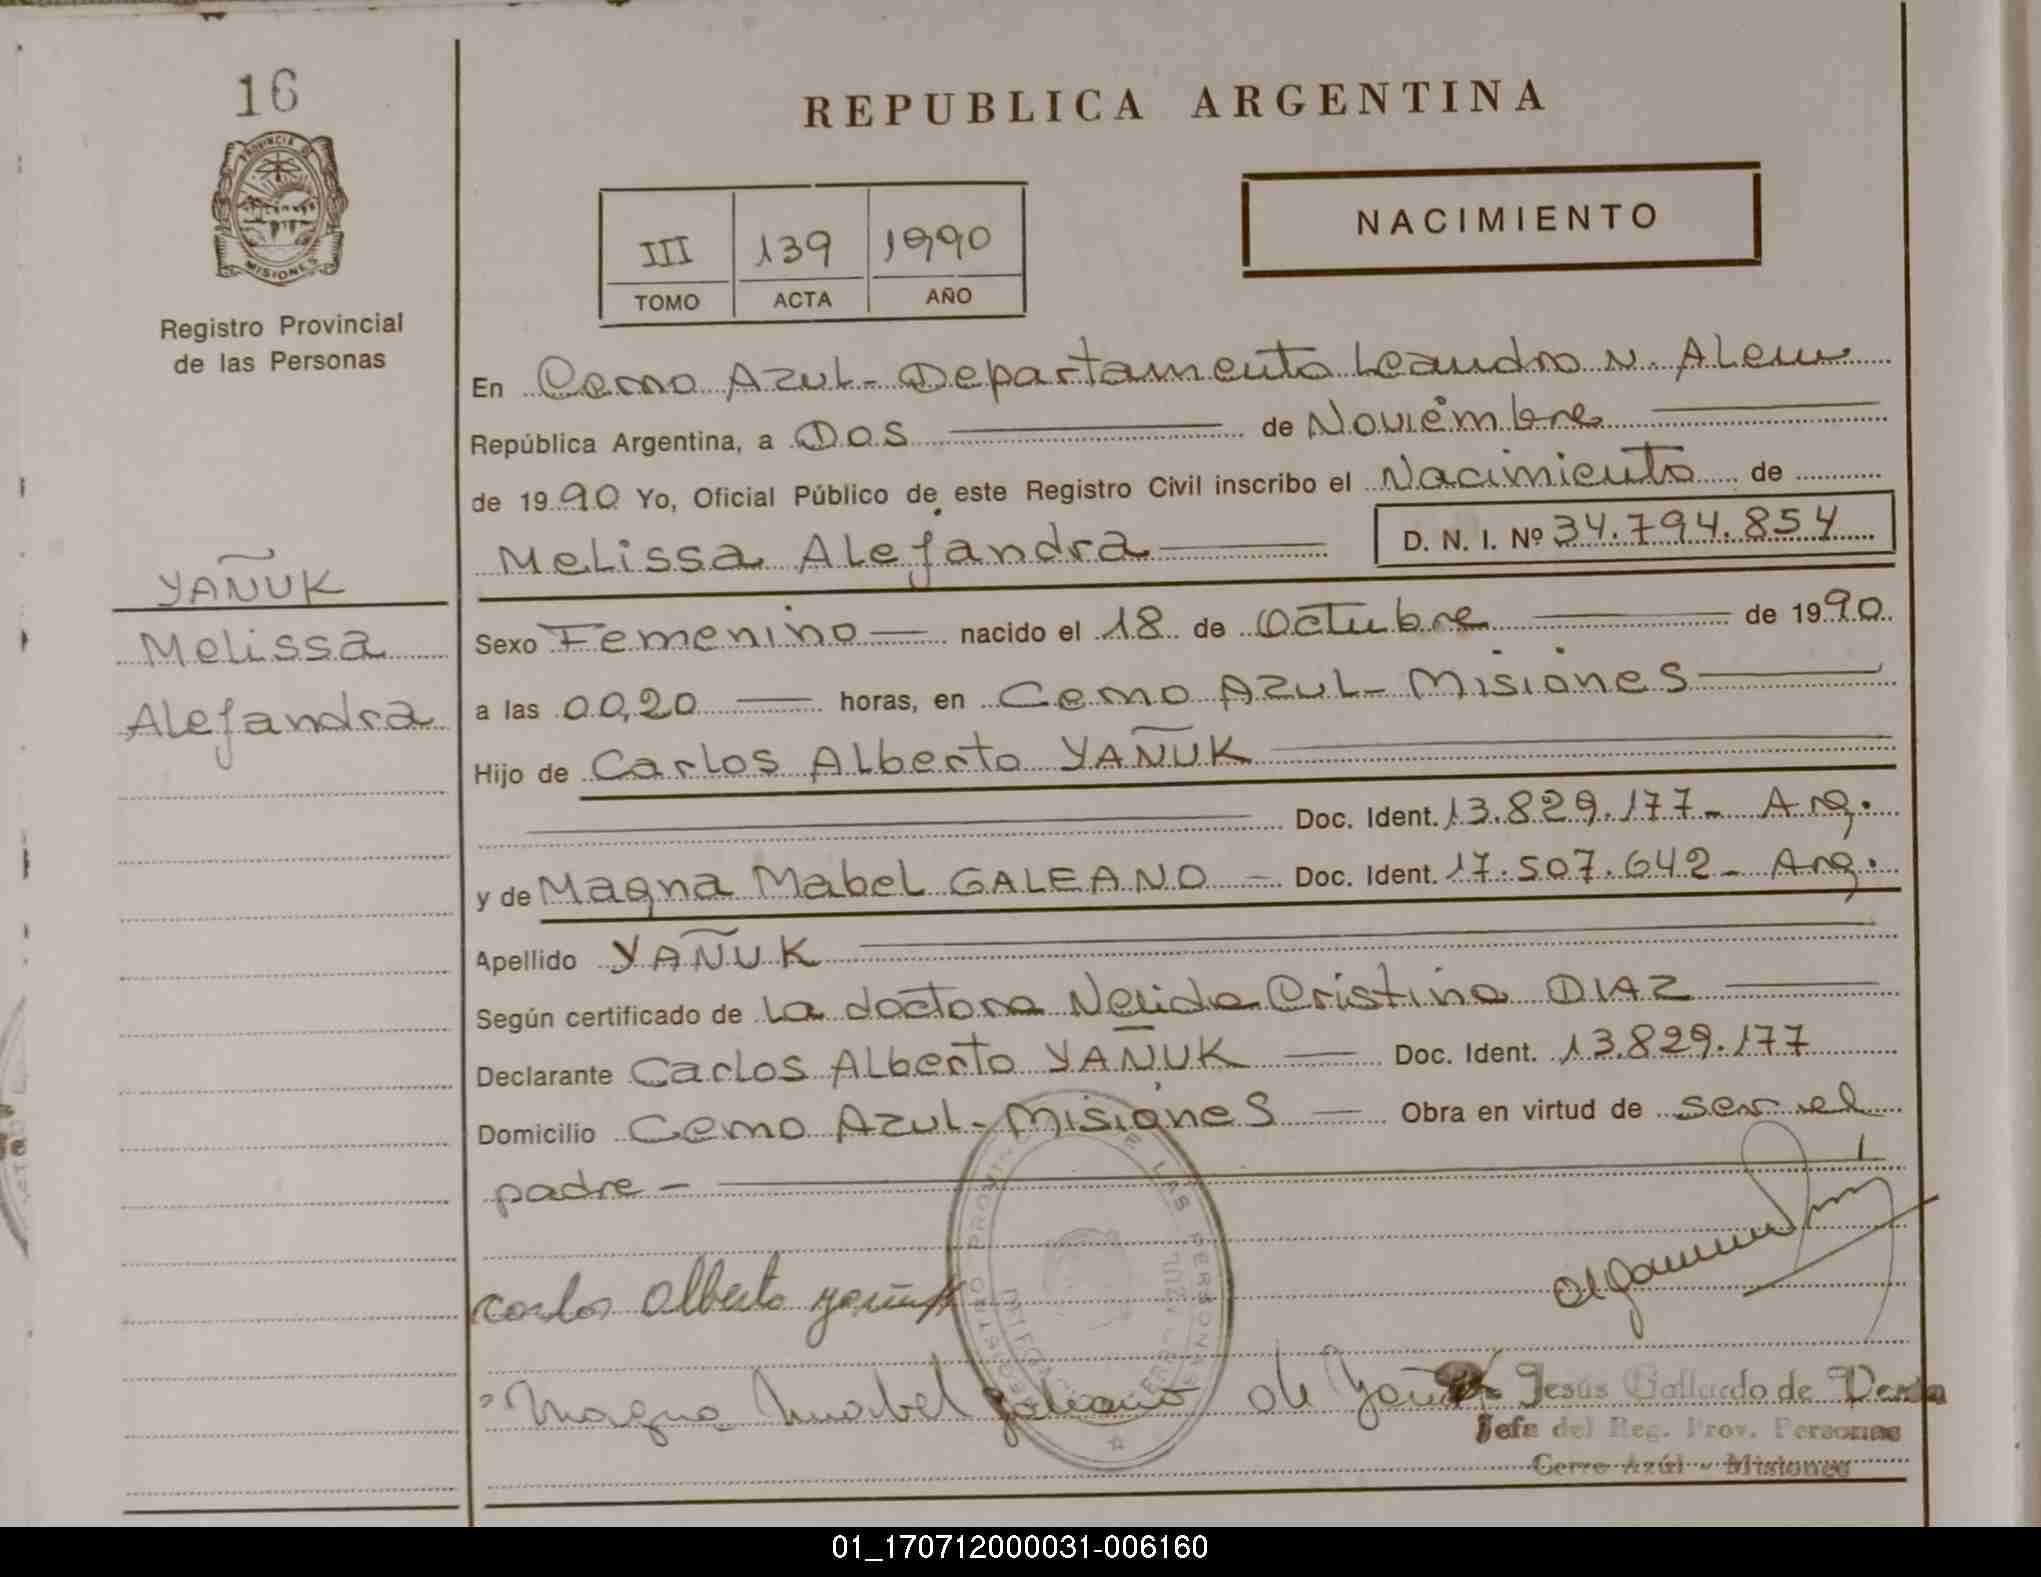 16
PROVINCIA DE
MISIONES
Registro Provincial
de las Personas
YAÑUK
Melissa
Alejandra
REPUBLICA ARGENTINA
NACIMIENTO
III 139 1990
TOMO ACTA AÑO
En Cerro Azul - Departamento Leandro N. Alem
República Argentina, a Dos de Noviembre
de 1990 Yo, Oficial Público de este Registro Civil inscribo el Nacimiento de
Melissa Alejandra D. N. I. Nº 34.794.854
Sexo Femenino nacido el 18 de Octubre de 1990
a las 00,20 horas, en Cerro Azul - Misiones
Hijo de Carlos Alberto YAÑUK
Doc. Ident. 13.829.177 - Arg.
y de Magna Mabel GALEANO - Doc. Ident. 17.507.642 - Arg.
Apellido YAÑUK
Según certificado de la doctora Nelida Cristina DIAZ
Declarante Carlos Alberto YAÑUK Doc. Ident. 13.829.177
Domicilio Cerro Azul - Misiones Obra en virtud de ser el
padre -
Carlos Alberto Yañuk
Magna Mabel Galeano de Yañuk
REGISTRO PROVINCIAL DE LAS PERSONAS
CERRO AZUL
Jesús Gallardo de
Jefe del Reg. Prov. Personas
Cerro Azúl - Misiones
01_170712000031-006160